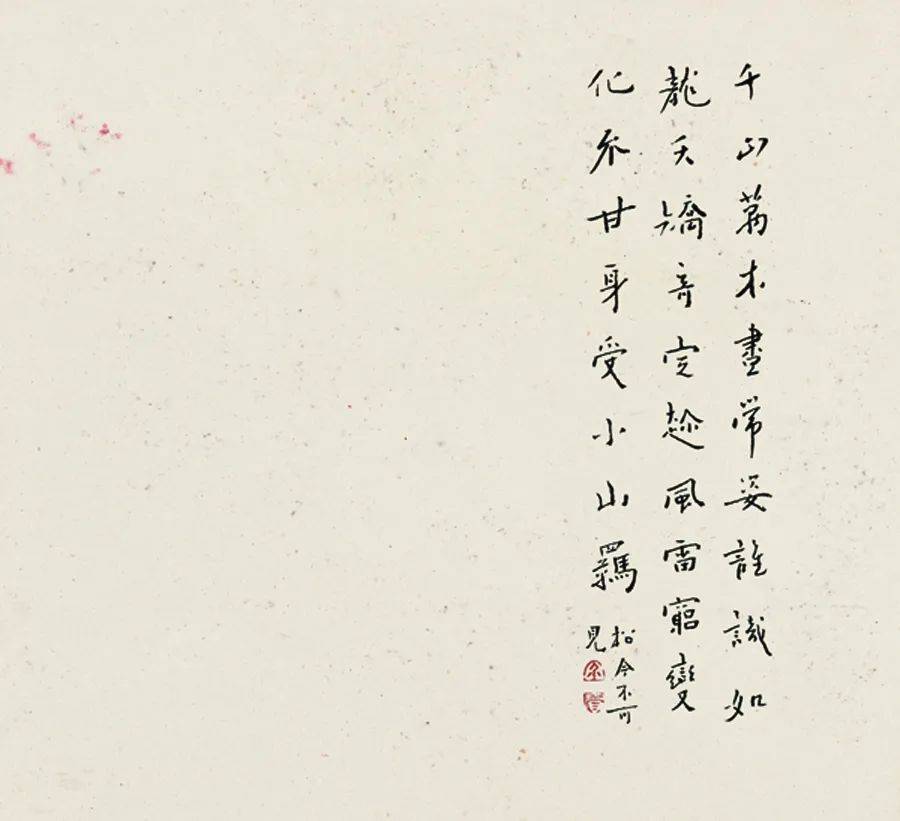 千山萬木盡常姿誰識如
龍夭矯奇定趁風雷窮變
化不甘身受小山羈
松今不可
見